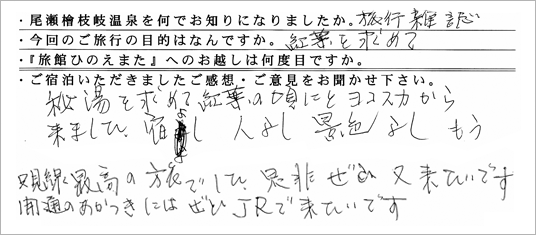 ・尾瀬檜枝岐温泉を何でお知りになりましたか。旅行雑誌
・今回のご旅行の目的はなんですか。紅葉を求めて
・『旅館ひのえまた』へのお越しは何度目ですか。
・ご宿泊いただきましたご感想・ご意見をお聞かせ下さい。
秘湯を求めて紅葉の頃にとヨコスカから
来ました、宿よし 人よし 景色よし もう
最高の旅でした、是非ぜひ 又来たいです
開通のあかつきにはぜひJRで来たいです